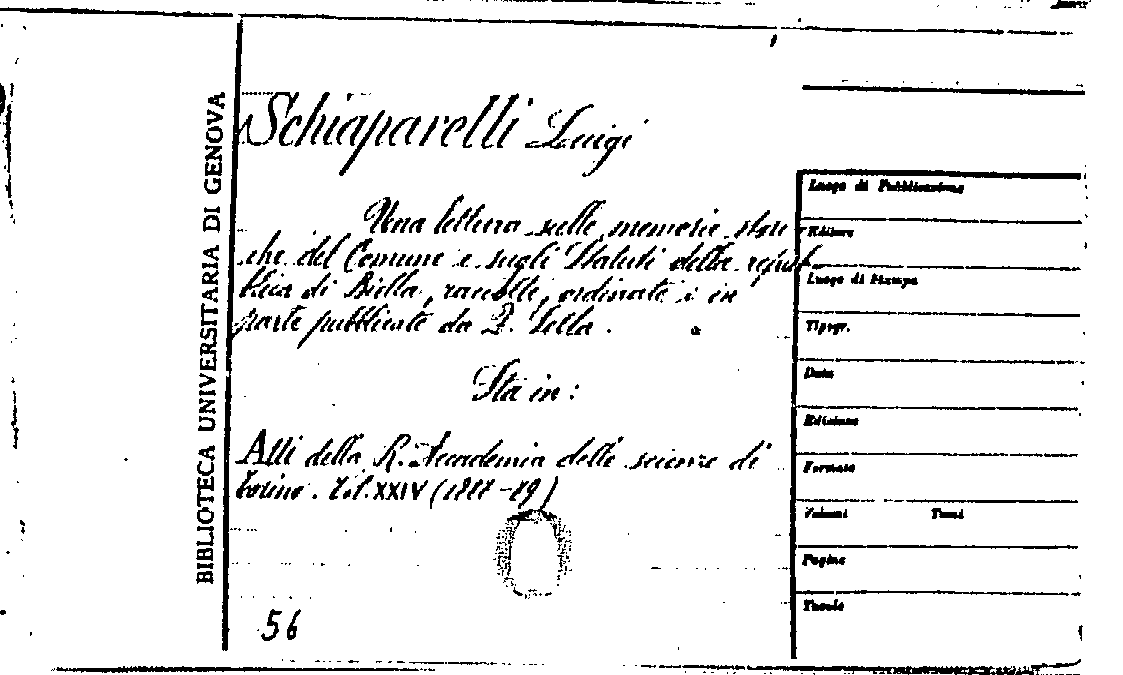 BIBLIOTECA UNIVERSITARIA DI GENOVA
Schiaparelli Luigi
Una lettura sulle memorie stori
che del Comune e sugli Statuti della repub
blica di Biella, raccolti, ordinati e in
parte pubblicati da Q. Sella.
Sta in:
Atti della R. Accademia delle scienze di
Torino. Vol. XXIV (1888-89)
56
Luogo di Pubblicazione
Editore
Luogo di Stampa
Tipogr.
Data
Edizione
Formato
Volumi Tomi
Pagine
Tavole